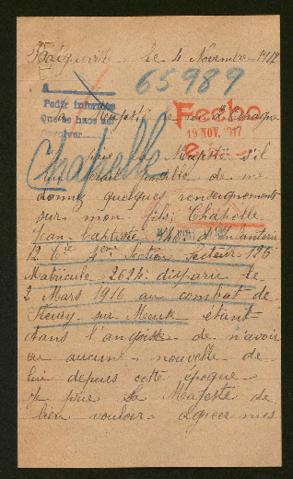 le 4 Novembre 1917
65989
A
Pedir informes
Que se hace
Fecho
19 NOV. 1917
Chapelle
sa Majesté le roi d'Espagne
prie sa Majesté s'il
lui serait possible de me
donner quelques renseignements
sur mon fils, Chapelle
Jean-baptiste d'infanterie
12e Cie Section Secteur 195
Matricule 2624 disparu le
2 Mars 1916 au combat de
sur Meuse étant
dans l'angoisse de n'avoir
eu aucune nouvelle de
lui depuis cette époque
je prie sa Majesté de
bien vouloir agréer mes